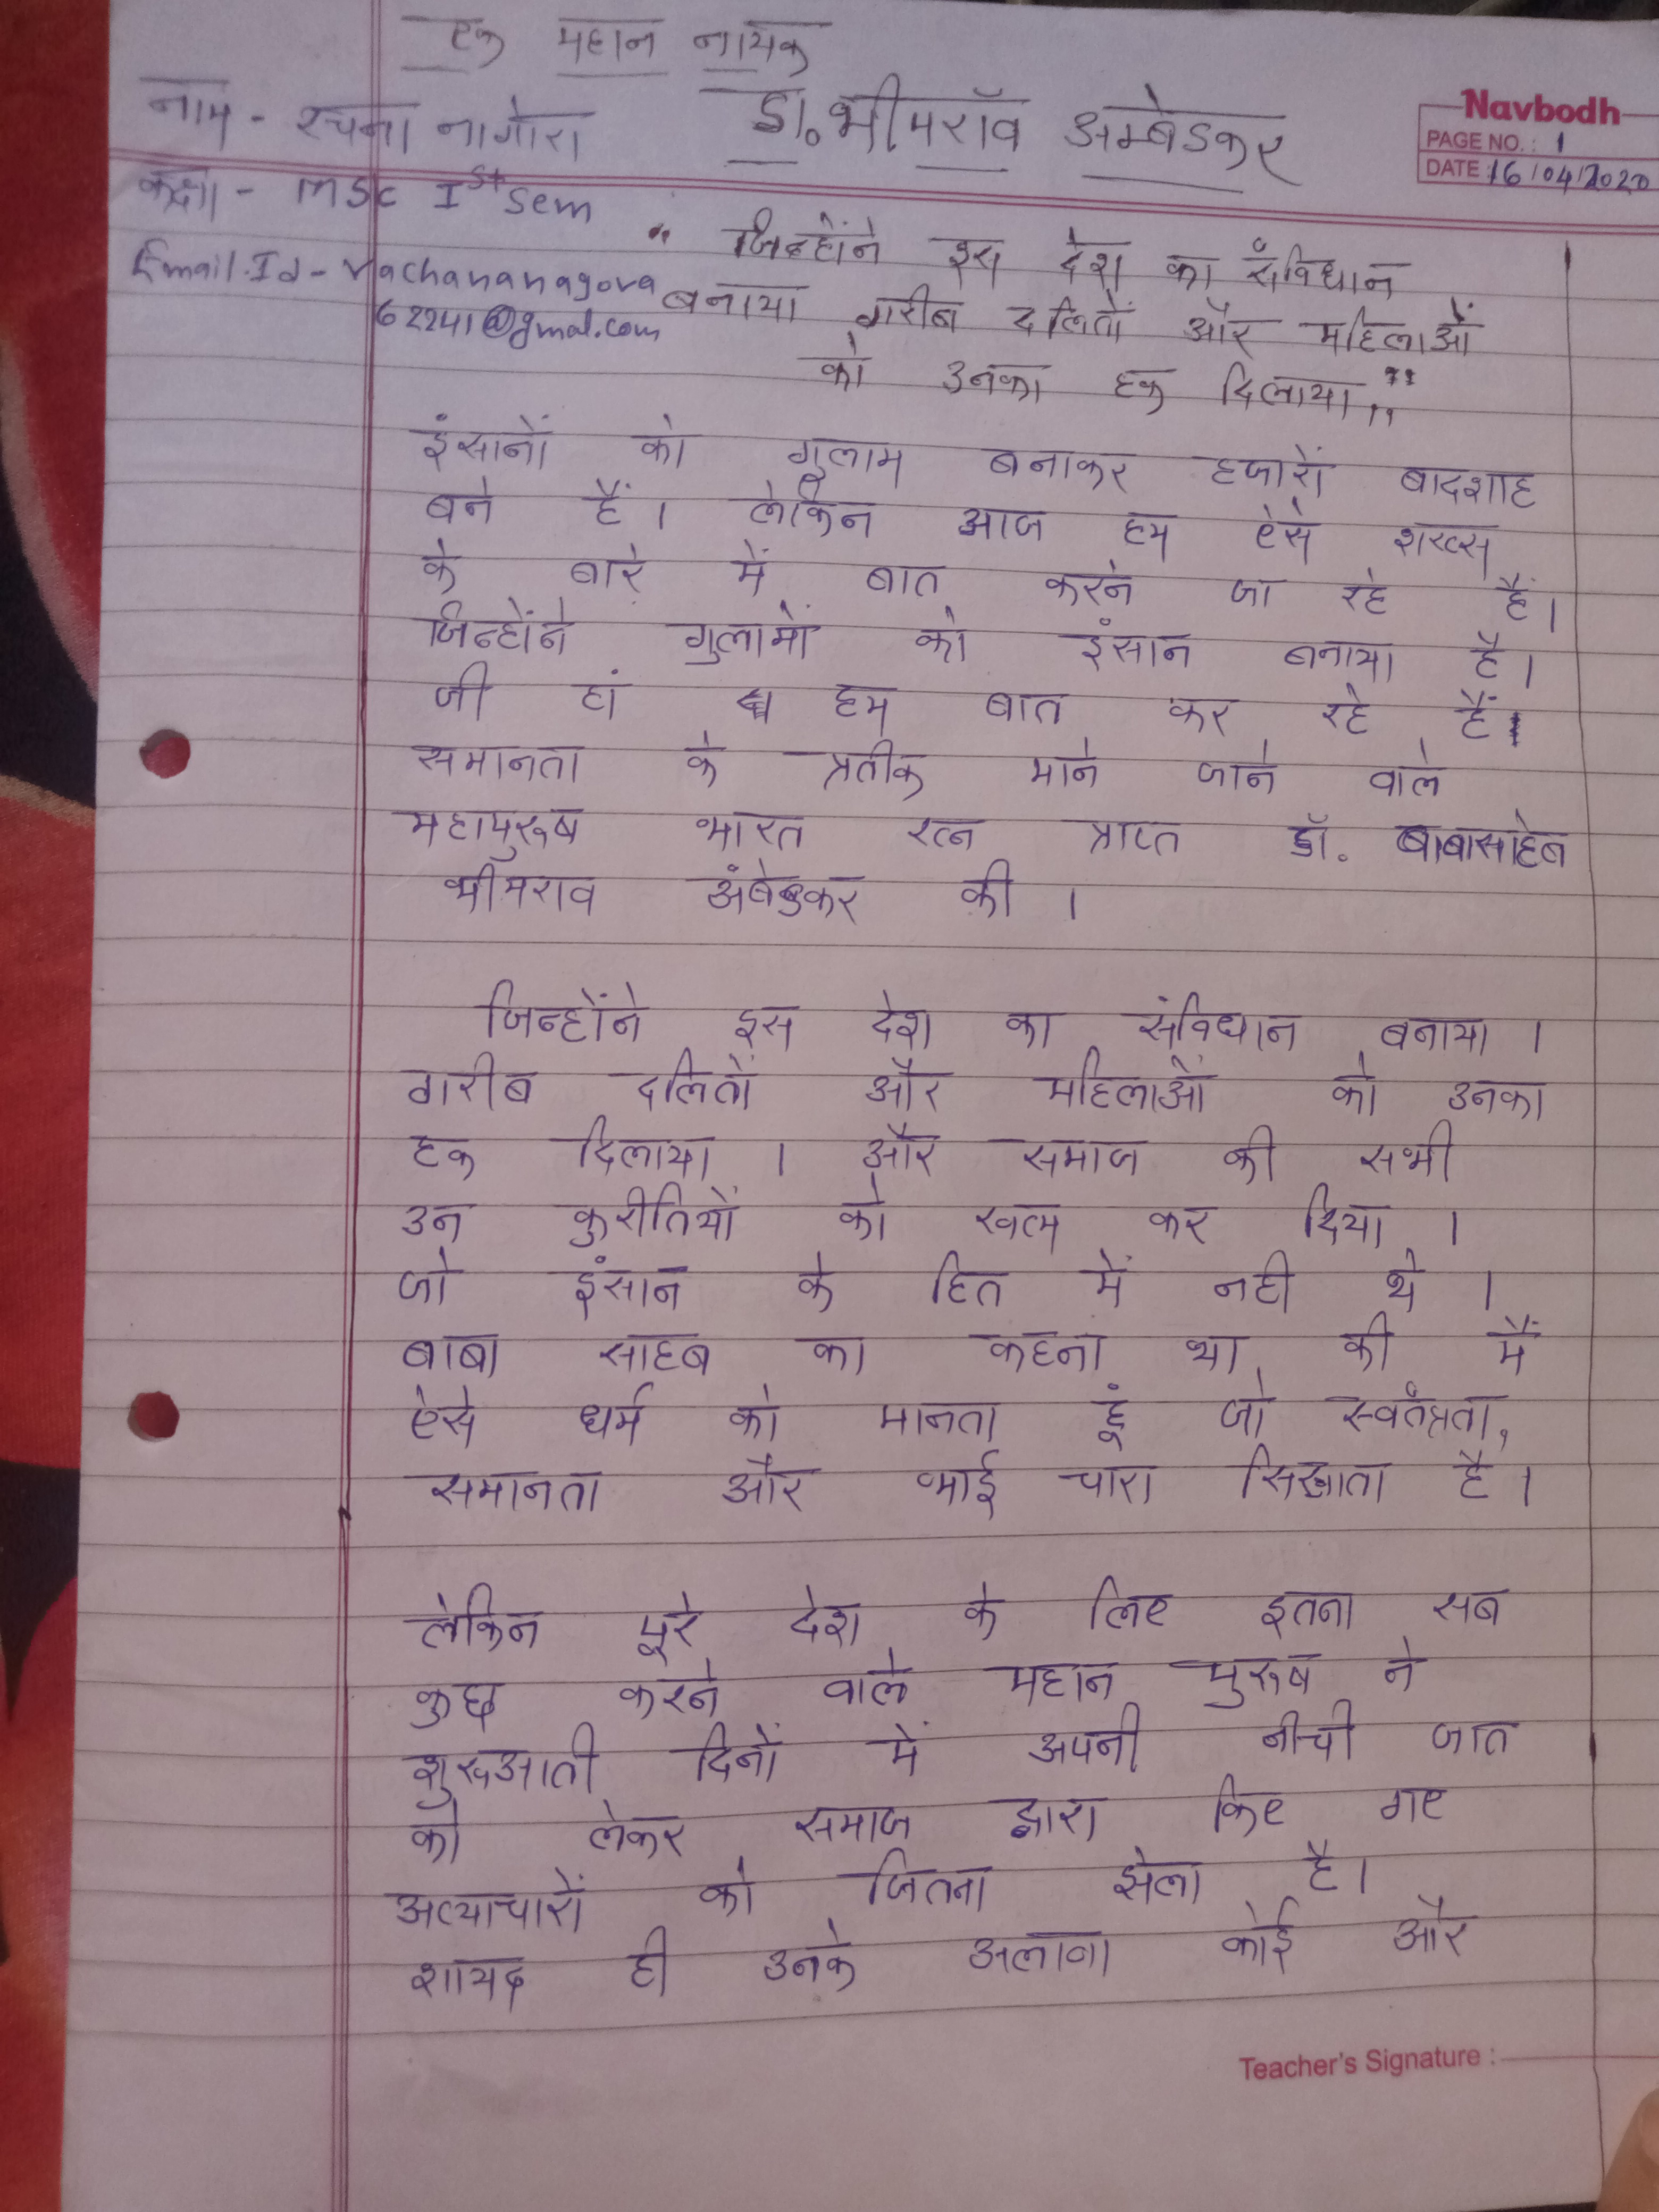 एक महान नायक
डा. भीमरॉव अम्बेडकर
नाम - रचना नागोरा
कक्षा - MSc Ist Sem
Email.Id - rachananagora
62241@gmal.com
Navbodh
PAGE NO.: 1
DATE 16/04/2020
" जिन्होंने इस देश का संविधान
बनाया गरीब दलितों और महिलाओं
को उनका हक दिलाया,,"
इंसानों को गुलाम बनाकर हजारों बादशाह
बने हैं । लेकिन आज हम ऐसे शख्स
के बारे में बात करने जा रहे हैं।
जिन्होंने गुलामों को इंसान बनाया है।
जी हां हम बात कर रहे हैं।
समानता के प्रतीक माने जाने वाले
महापुरूष भारत रत्न प्राप्त डॉ. बाबासाहेब
भीमराव अंबेडकर की ।
जिन्होंने इस देश का संविधान बनाया ।
गरीब दलितों और महिलाओं को उनका
हक दिलाया । और समाज की सभी
उन कुरीतियों को खत्म कर दिया ।
जो इंसान के हित में नही थे ।
बाबा साहब का कहना था की मैं
ऐसे धर्म को मानता हूं जो स्वतंत्रता,
समानता और भाई चारा सिखाता है ।
लेकिन पूरे देश के लिए इतना सब
कुछ करने वाले महान पुरूष ने
शुरूआती दिनों में अपनी नीची जात
को लेकर समाज द्वारा किए गए
अत्याचारों को जितना झेला है।
शायद ही उनके अलावा कोई और
Teacher's Signature :